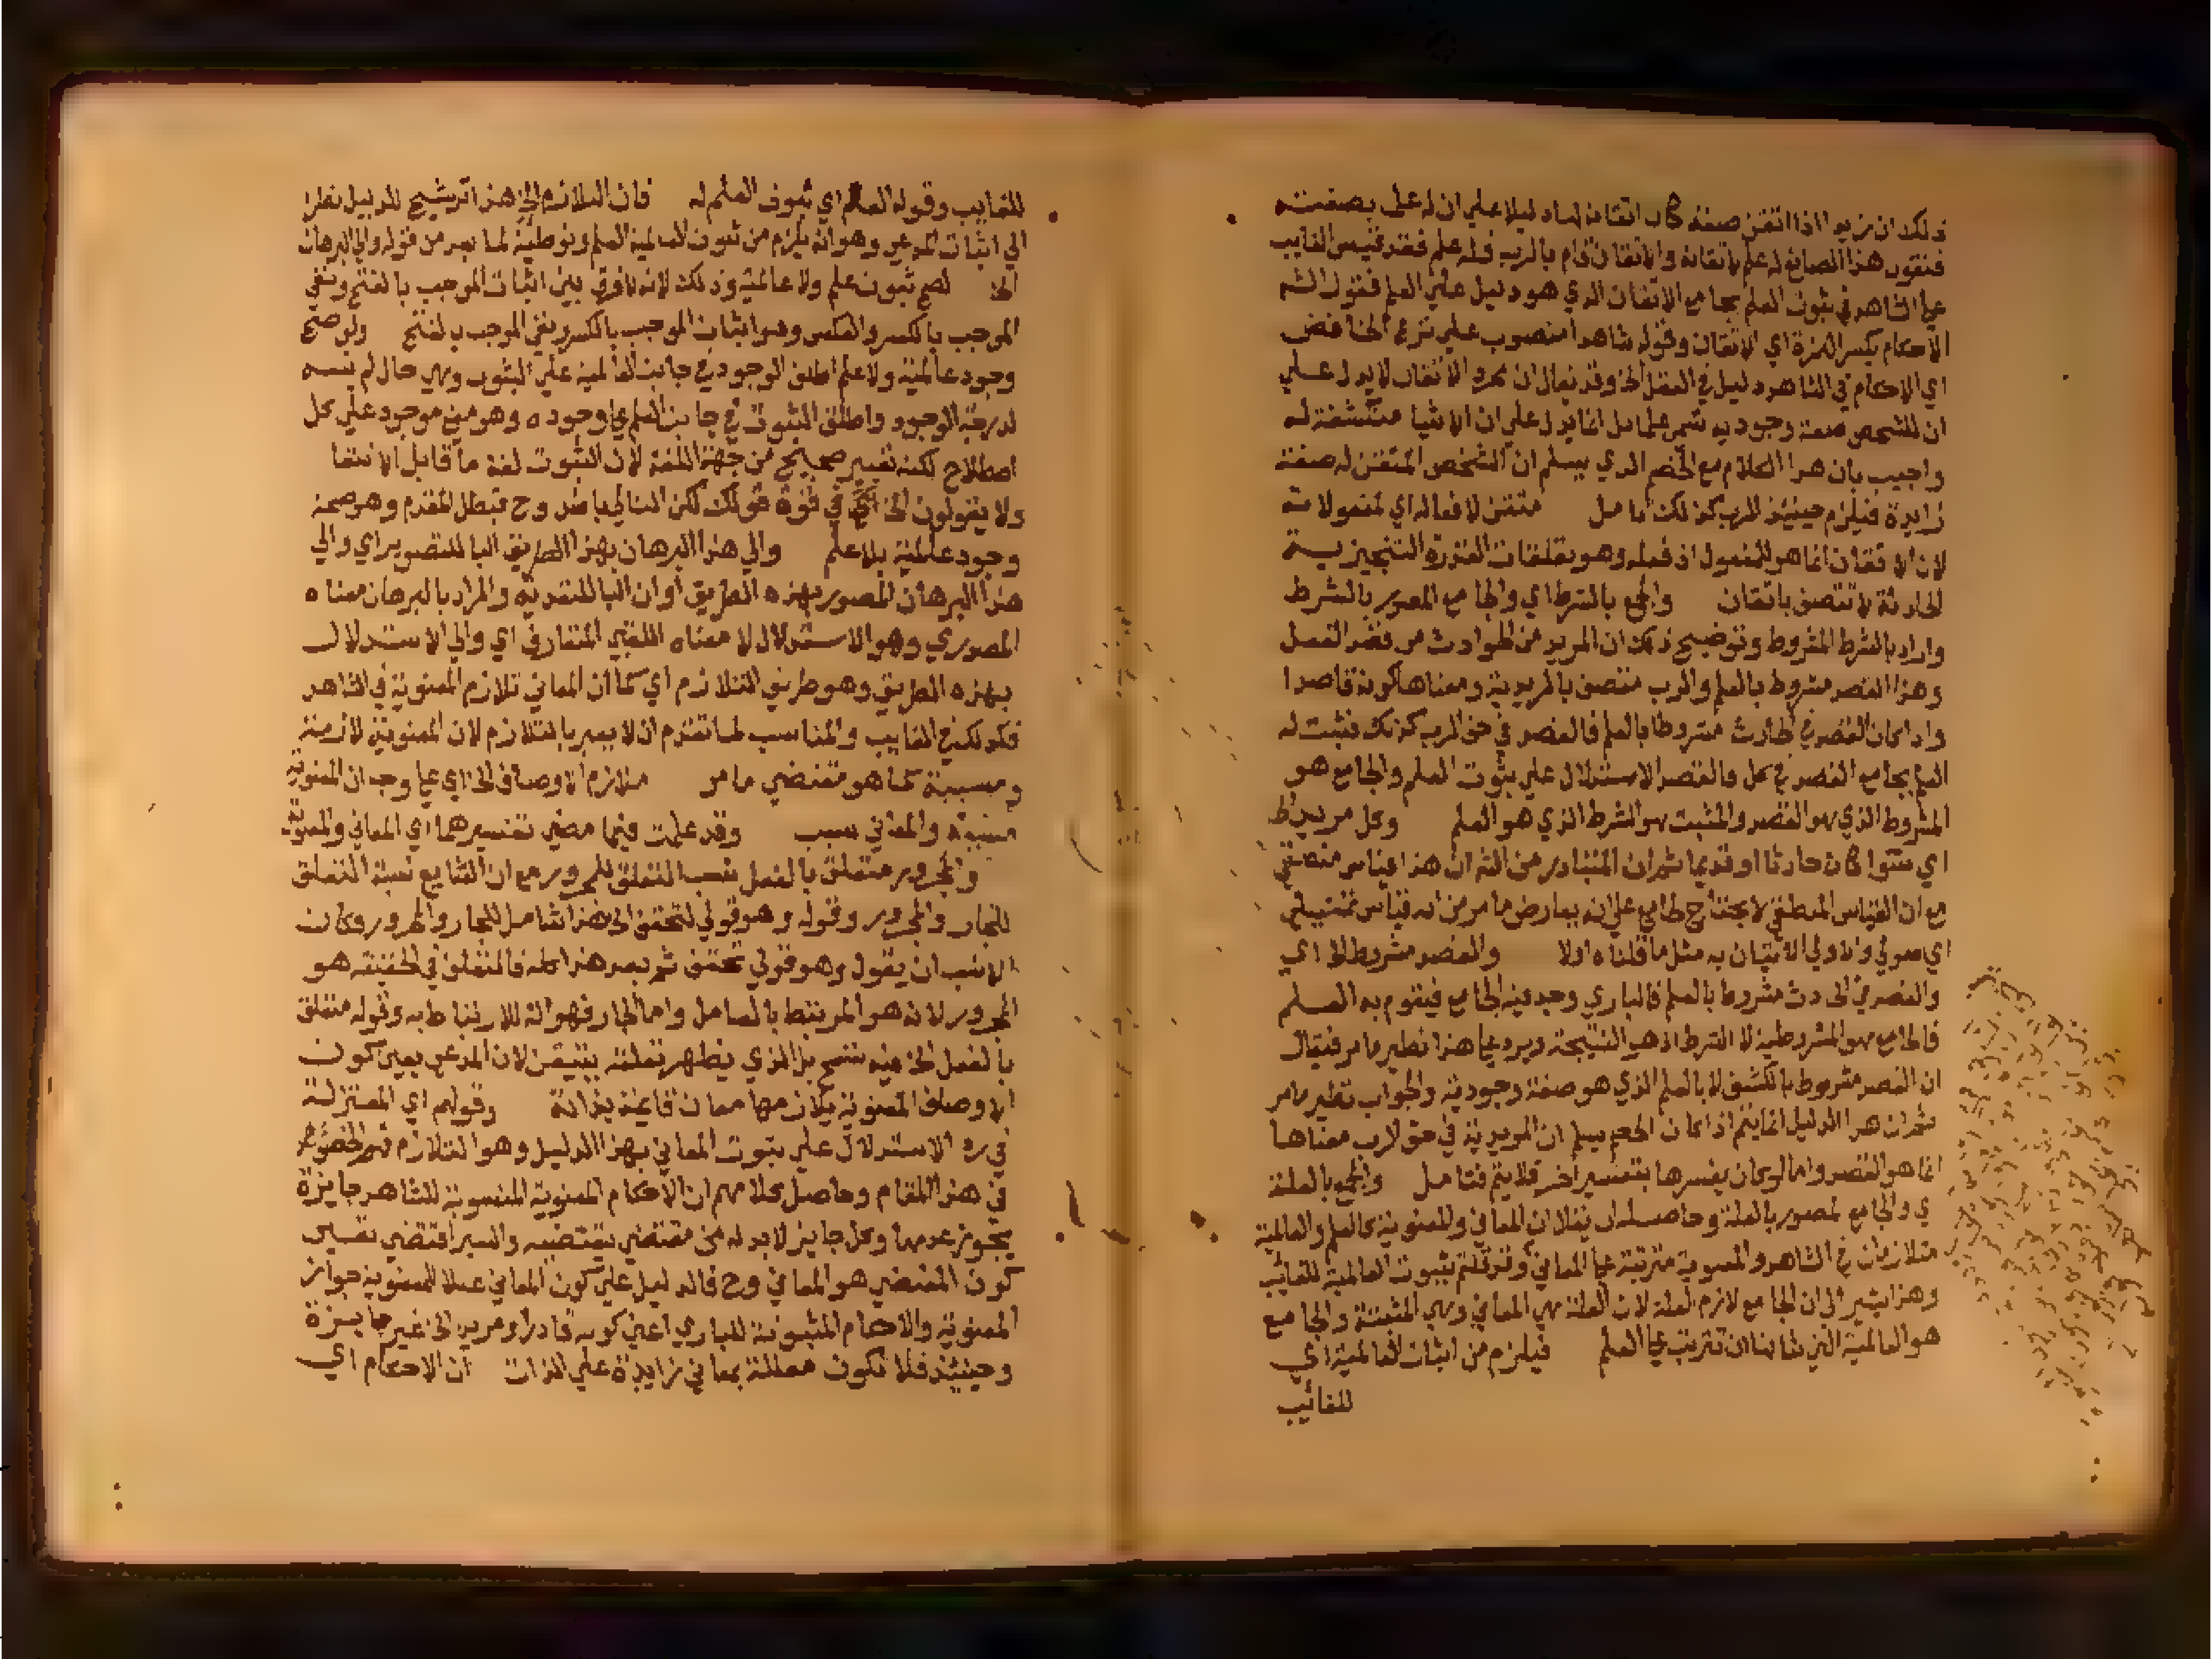 ذلك ان زيدا اذا اتقن صنعة كان اتقانه لها دليلا علي ان له علم بصنعته
فنقول هذا الصانع له علم لاتقانه والاتقان قام بالرب فله علم فقد نقيس الغايب
علي الشاهد في ثبوت العلم بجامع الاتقان الذي هو دليل علي العلم فقول الشم
الاحكام بكسر الهمزة اي الاتقان وقوله شاهدا منصوب علي نزع الخافض
اي الاحكام في الشاهد دليل في العقل الخ وقد يقال ان مجرد الاتقان لا يدل علي
ان للشخص صفة وجودية تسمي علما بل انما يدل علي ان الاشيا منكشفة له
واجيب بان هذا الكلام مع الخصم الذي يسلم ان الشخص المتقن له صفة
زايدة فيلزم حينئذ للرب كذلك تامل متقن لافعاله اي لمفعولاته
لان الاتقان انما هو للمفعول اذ فعله وهو تعلقات القدرة التنجيزية
الحادثة لا تتصف باتقان والجمع بالشرط اي والجامع المصور بالشرط
واراد بالشرط المشروط وتوضيح ذلك ان المريد من الحوادث من قصد الفعل
وهذا القصد مشروط بالعلم والرب متصف بالمريدية ومعناها كونه قاصدا
واذا كان القصد في الحادث مشروطا بالعلم فالقصد في حق الرب كذلك فثبت له
العلم بجامع القصد في كل فالقصد الاستدلال علي ثبوت العلم والجامع هو
المشروط الذي هو القصد والمثبت هو الشرط الذي هو العلم وكل مريد الخ
اي سوا كان حادثا او قديما ثم ان المتبادر من الشم ان هذا قياس منطقي
مع ان القياس المنطقي لا يحتاج لجامع علي انه يعارض ما مر من انه قياس تمثيلي
اي اصولي والاولي الاتيان به مثل ما قلناه اولا والقصد مشروط الخ اي
والقصد في الحادث مشروط بالعلم فالباري وجد فيه الجامع فيقوم به العلم
فالجامع هو المشروطية لا الشرط اذ هو النتيجة ويرد علي هذا نظير ما مر فيقال
ان القصد مشروط بالكشف لا بالعلم الذي هو صفة وجودية والجواب نظير ما مر
ثم ان هذا الدليل انما يتم اذا كان الخصم يسلم ان المريدية في حق الرب معناها
انما هو القصد واما لو كان يفسرها بتفسير اخر فلا يتم فتامل والجمع بالعلة
اي والجامع المصور بالعلة وحاصله ان يقال ان المعاني والمعنوية كالعلم والعالمية
متلازمان في الشاهد والمعنوية مترتبة علي المعاني وقد قلتم بثبوت العالمية للغايب
وهذا يشير الي ان الجامع لازم العلة لان العلة هي المعاني وهي المثبتة والجامع
هو العالمية التي شانها ان تترتب علي العلم فيلزم من اثبات العالمية اي
للغائب
للغايب وقوله العلم اي ثبوت العلم له فان التلازم الخ هذا ترشيح للدليل نظرا
الي اثبات المدعي وهو انه يلزم من ثبوت العالمية العلم وتوطية لما بعد من قوله والي البرهان
الخ لصح ثبوت علم ولا عالمية وذلك لانه لا فرق بين اثبات الموجب بالفتح ونفي
الموجب بالكسر والعكس وهو اثبات الموجب بالكسر ونفي الموجب بالفتح ولو صح
وجود عالمية ولا علم اطلق الوجود في جانب العالمية علي الثبوت وهي حال لم يسم
لدرجة الوجود واطلق الثبوت في جانب العلم علي وجوده وهو معني موجود علي كل
اصطلاح لكنه تعبير صحيح من جهة اللغة لان الثبوت لغة ما قابل الانتفا
ولا يقولون الخ في قوة قولك لكن التالي باطل وح فبطل المقدم وهو صحة
وجود عالمية بلا علم والي هذا البرهان بهذا الطريق البا للتصوير اي والي
هذا البرهان المصور بهذه الطريق او ان البا للتعدية والمراد بالبرهان معناه
المصدري وهو الاستدلال لا معناه اللقبي المتعارف اي والي الاستدلال
بهذه الطريق وهو طريق التلازم اي كما ان المعاني تلازم المعنوية في الشاهد
فكذلك في الغايب والمناسب لما تقدم ان لا يعبر بالتلازم لان المعنوية لازمة
ومسببة كما هو مقتضي ما مر ملازم الاوصاف الخ اي علي وجه ان المعنوية
مسببة والمعاني سبب وقد علمت فيما مضي تفسيرهما اي المعاني والمعنوية
والمجرور متعلق بالفعل نسب التعلق للمجرور مع ان الشايع نسبة التعلق
للجار والمجرور وقوله وهو قولي لتحقق الخ هذا شامل للجار والمجرور وكان
الانسب ان يقول وهو قولي تحقق ثم بعد هذا كله فالمتعلق في الحقيقة هو
المجرور لانه هو المرتبط بالعامل واما الجار فهو الة للارتباط به وقوله متعلق
بالفعل الخ فيه تسمح بل الذي يظهر تعلقه بتيقن لان المدعي يعني كون
الاوصاف المعنوية يلازمها معان قايمة بذاته وقولهم اي المعتزلة
في رد الاستدلال علي ثبوت المعاني بهذا الدليل وهو التلازم فهم الخصوم
في هذا المقام وحاصل كلامهم ان الاحكام المعنوية المنسوبة للشاهد جايزة
يجوز عدمها وكل جايز لا بد له من مقتضي يقتضيه والسبر اقتضي تعيين
كون المقتضي هو المعاني وح فالدليل علي كون المعاني عللا للمعنوية جواز
المعنوية والاحكام الثبوتية للباري اعني كونه قادرا ومريدا الخ غير جايزة
وحينئذ فلا تكون معللة بمعاني زايدة علي الذات ان الاحكام اي